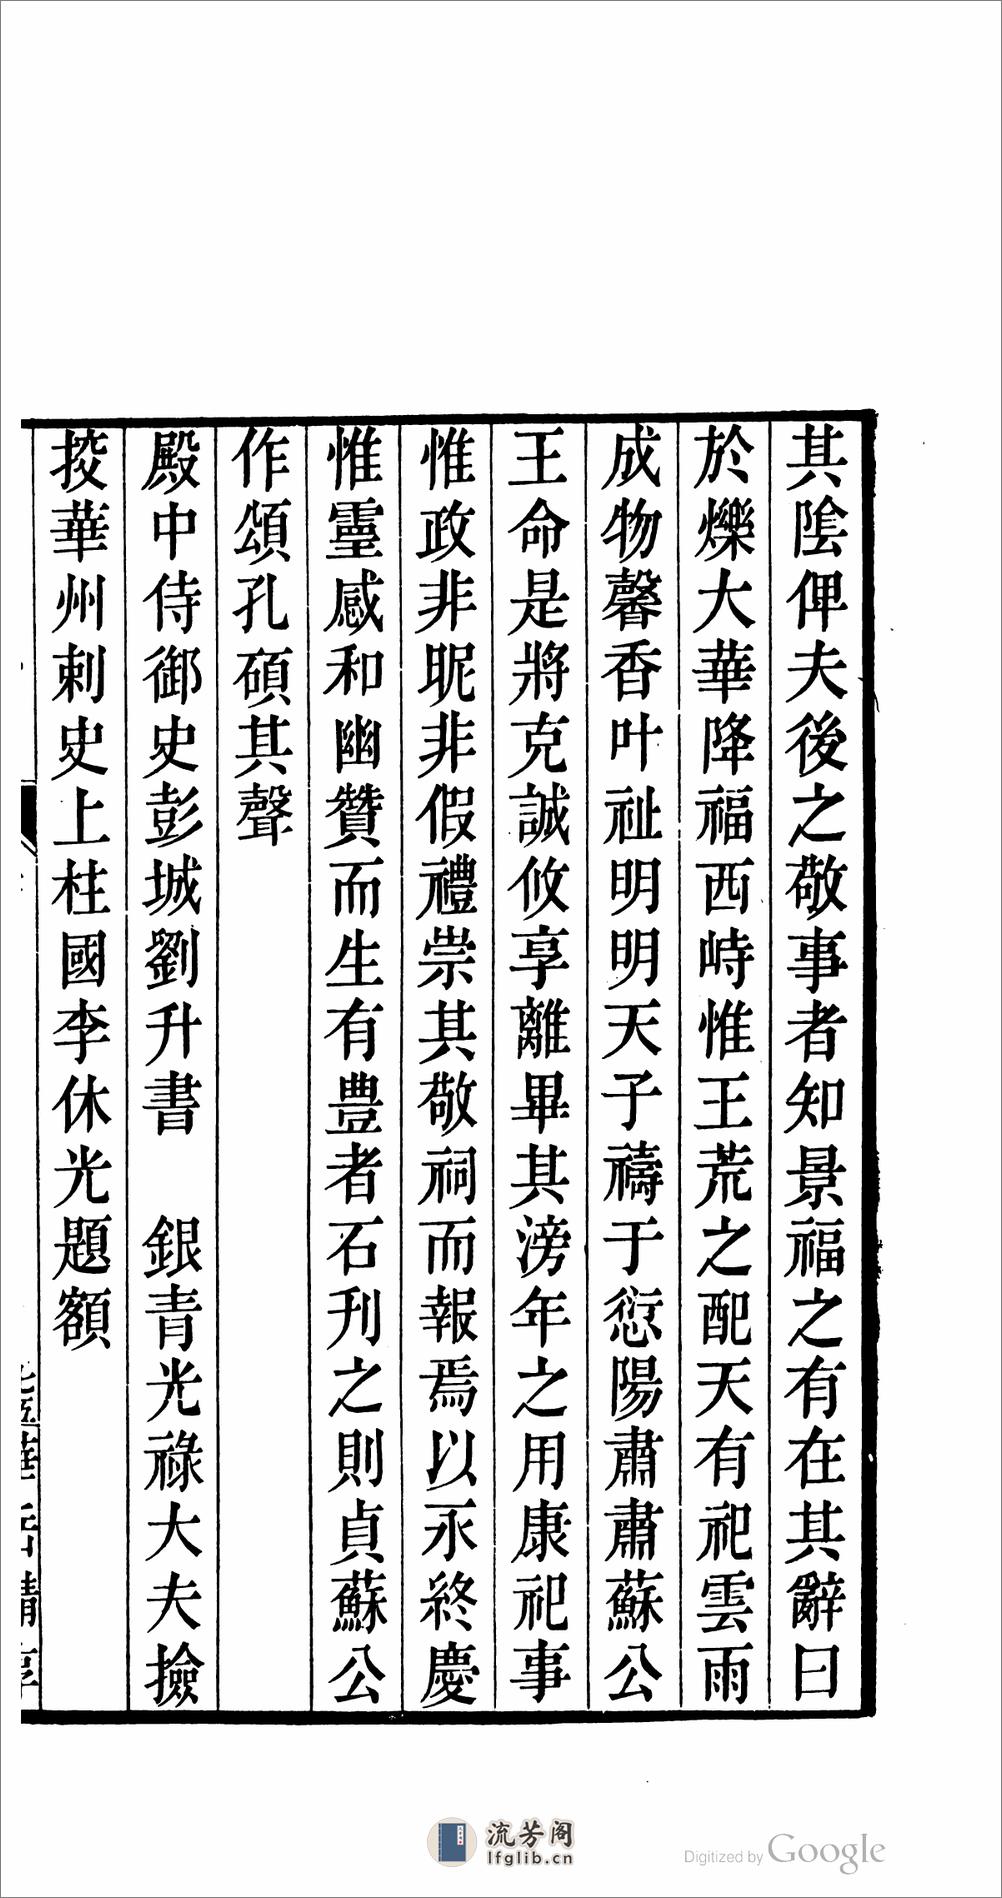 其陰俾夫後之敬事者知景福之有在其辭曰
於爍大華降福西峙惟王荒之配天有祀雲雨
成物馨香叶祉明明天子禱于愆陽肅肅蘇公
王命是將克誠攸享離畢其滂年之用康祀事
惟政非昵非假禮崇其敬祠而報焉以永終慶
惟靈感和幽贊而生有豊者石刋之則貞蘇公
作頌孔碩其聲
殿中侍御史彭城劉升書　銀青光祿大夫撿
挍華州刺史上柱國李休光題額
流芳阁
lfglib.cn
Digitized by Google